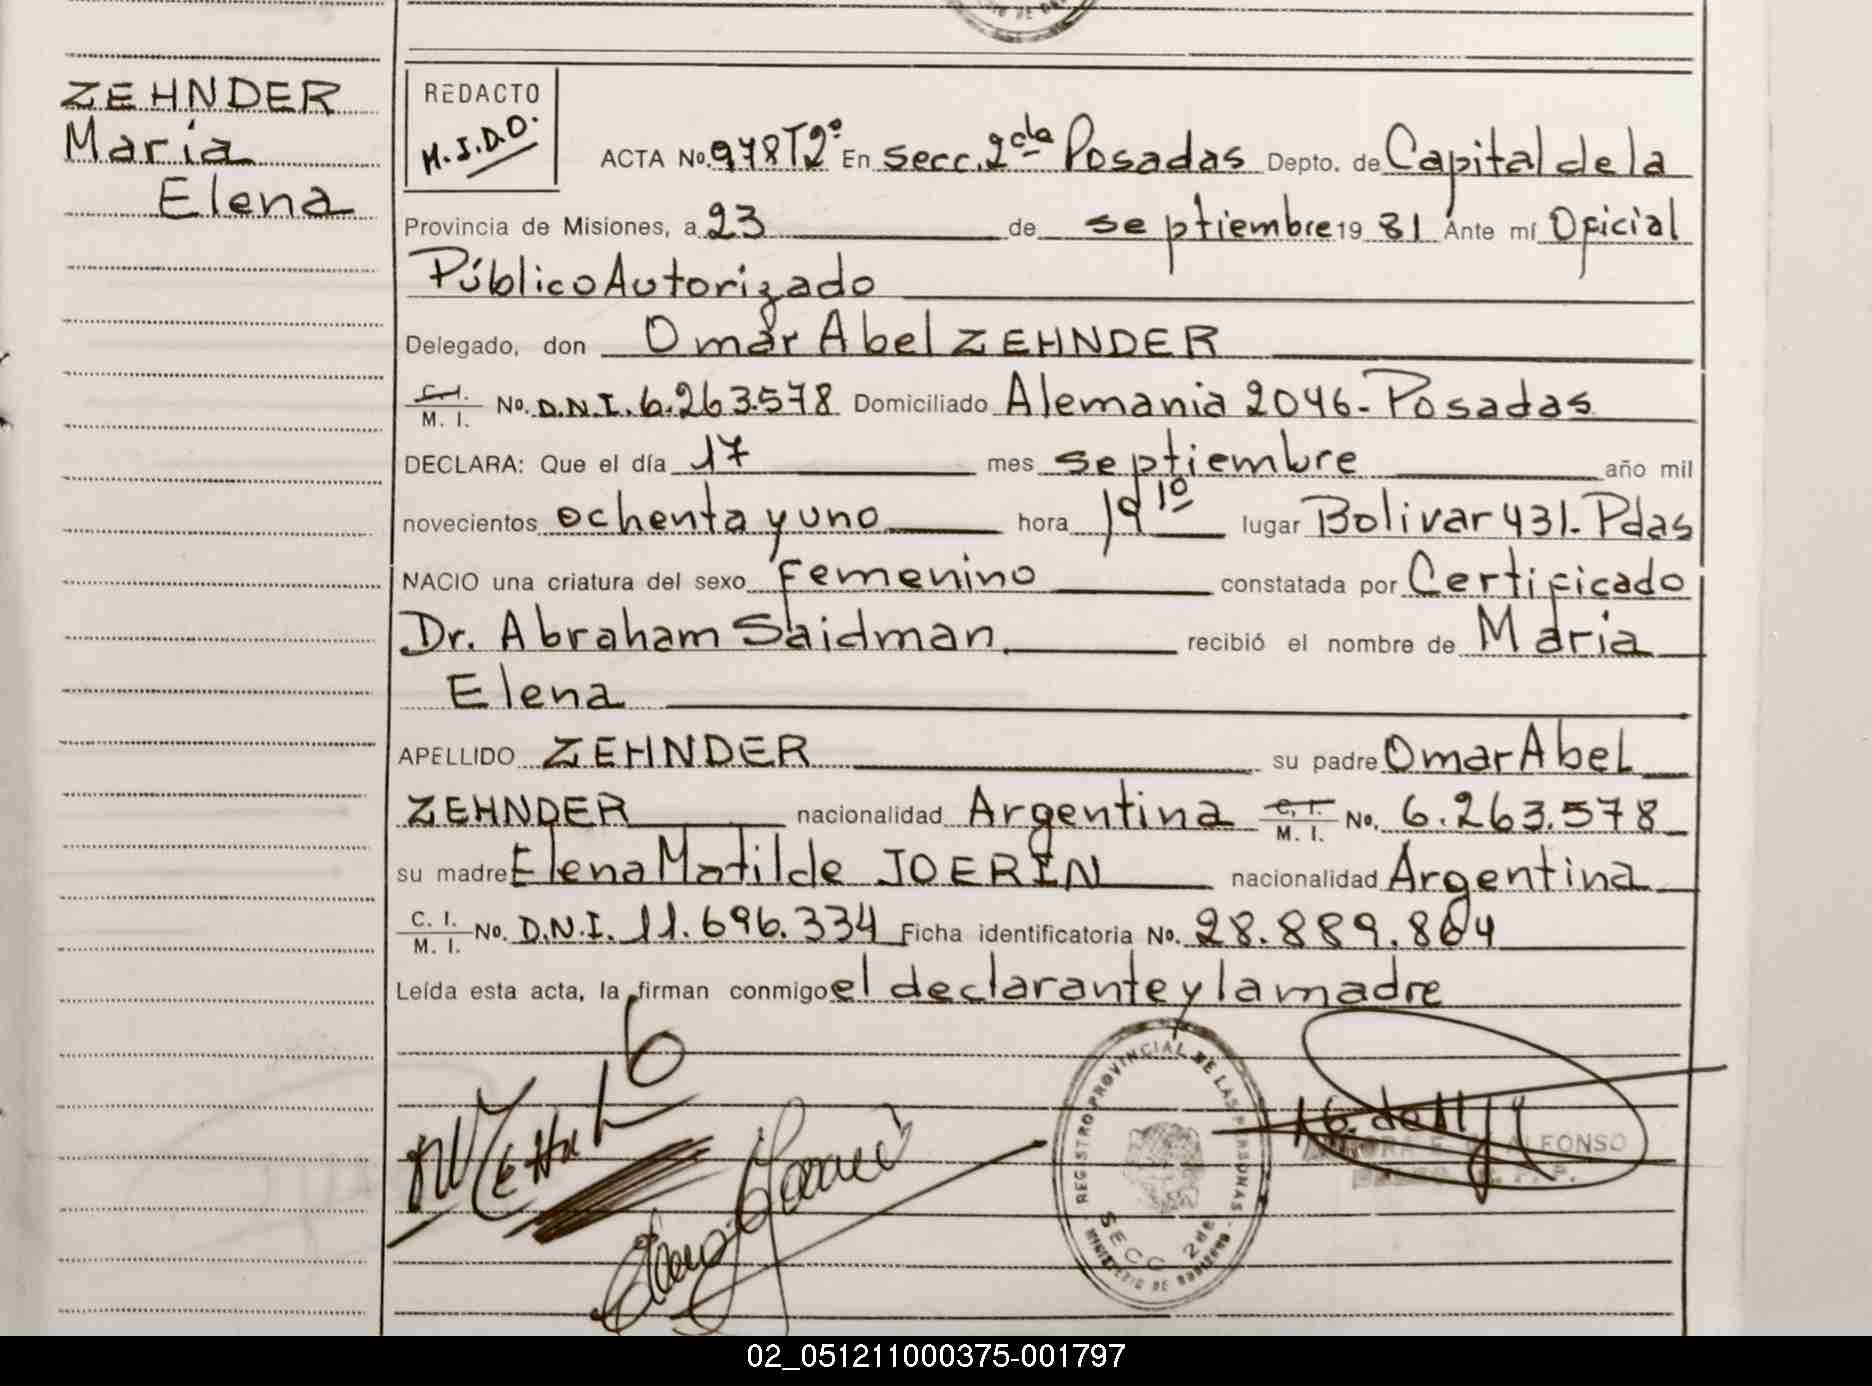 ZEHNDER
María
Elena
REDACTO
M.I.D.O.
ACTA No. 978T2º En secc. 2cda Posadas Depto. de Capital de la
Provincia de Misiones, a 23 de septiembre 19 81 Ante mí Oficial
Público Autorizado
Delegado, don Omar Abel ZEHNDER
C. I.
M. I. No. D.N.I. 6.263.578 Domiciliado Alemania 2046-Posadas
DECLARA: Que el día 17 mes septiembre año mil
novecientos ochenta y uno hora 19 10 lugar Bolivar 431-Pdas
NACIO una criatura del sexo femenino constatada por Certificado
Dr. Abraham Saidman recibió el nombre de María
Elena
APELLIDO ZEHNDER su padre Omar Abel
ZEHNDER nacionalidad Argentina C. I. M. I. No. 6.263.578
su madre Elena Matilde JOERIN nacionalidad Argentina
C. I.
M. I. No. D.N.I. 11.696.334 Ficha identificatoria No. 28.889.864
Leída esta acta, la firman conmigo el declarante y la madre
REGISTRO PROVINCIAL DE LAS PERSONAS
SECC 2da
MINISTERIO DE GOBIERNO
ALFONSO
02_051211000375-001797